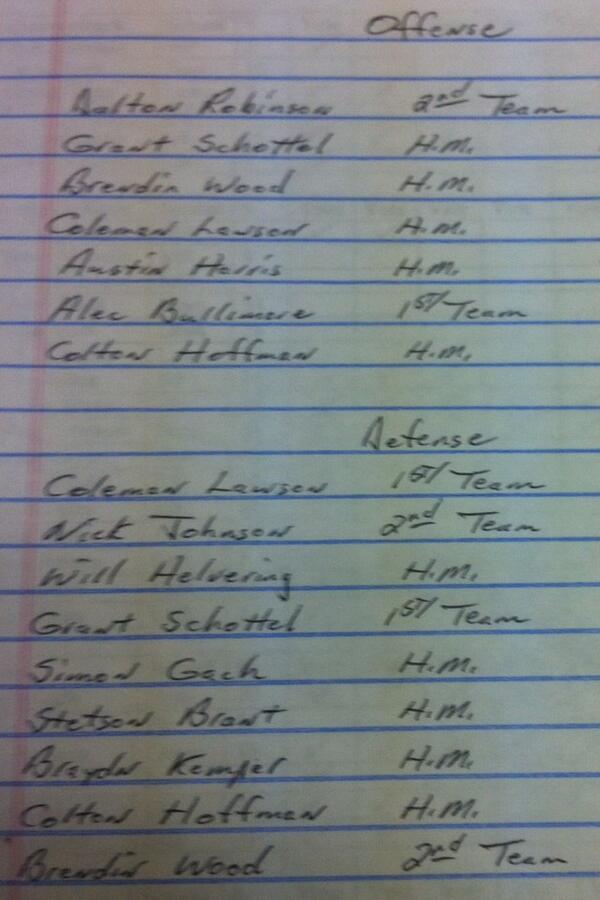 Offense
Dalton Robinson 2nd Team
Grant Schottel H.M.
Brendin Wood H.M.
Coleman Lawson H.M.
Austin Harris H.M.
Alec Bullimore 1ST Team
Colton Hoffman H.M.
Defense
Coleman Lawson 1ST Team
Nick Johnson 2nd Team
Will Helvering H.M.
Grant Schottel 1ST Team
Simon Gach H.M.
Stetson Brant H.M.
Braydn Kemper H.M.
Colton Hoffman H.M.
Brendin Wood 2nd Team